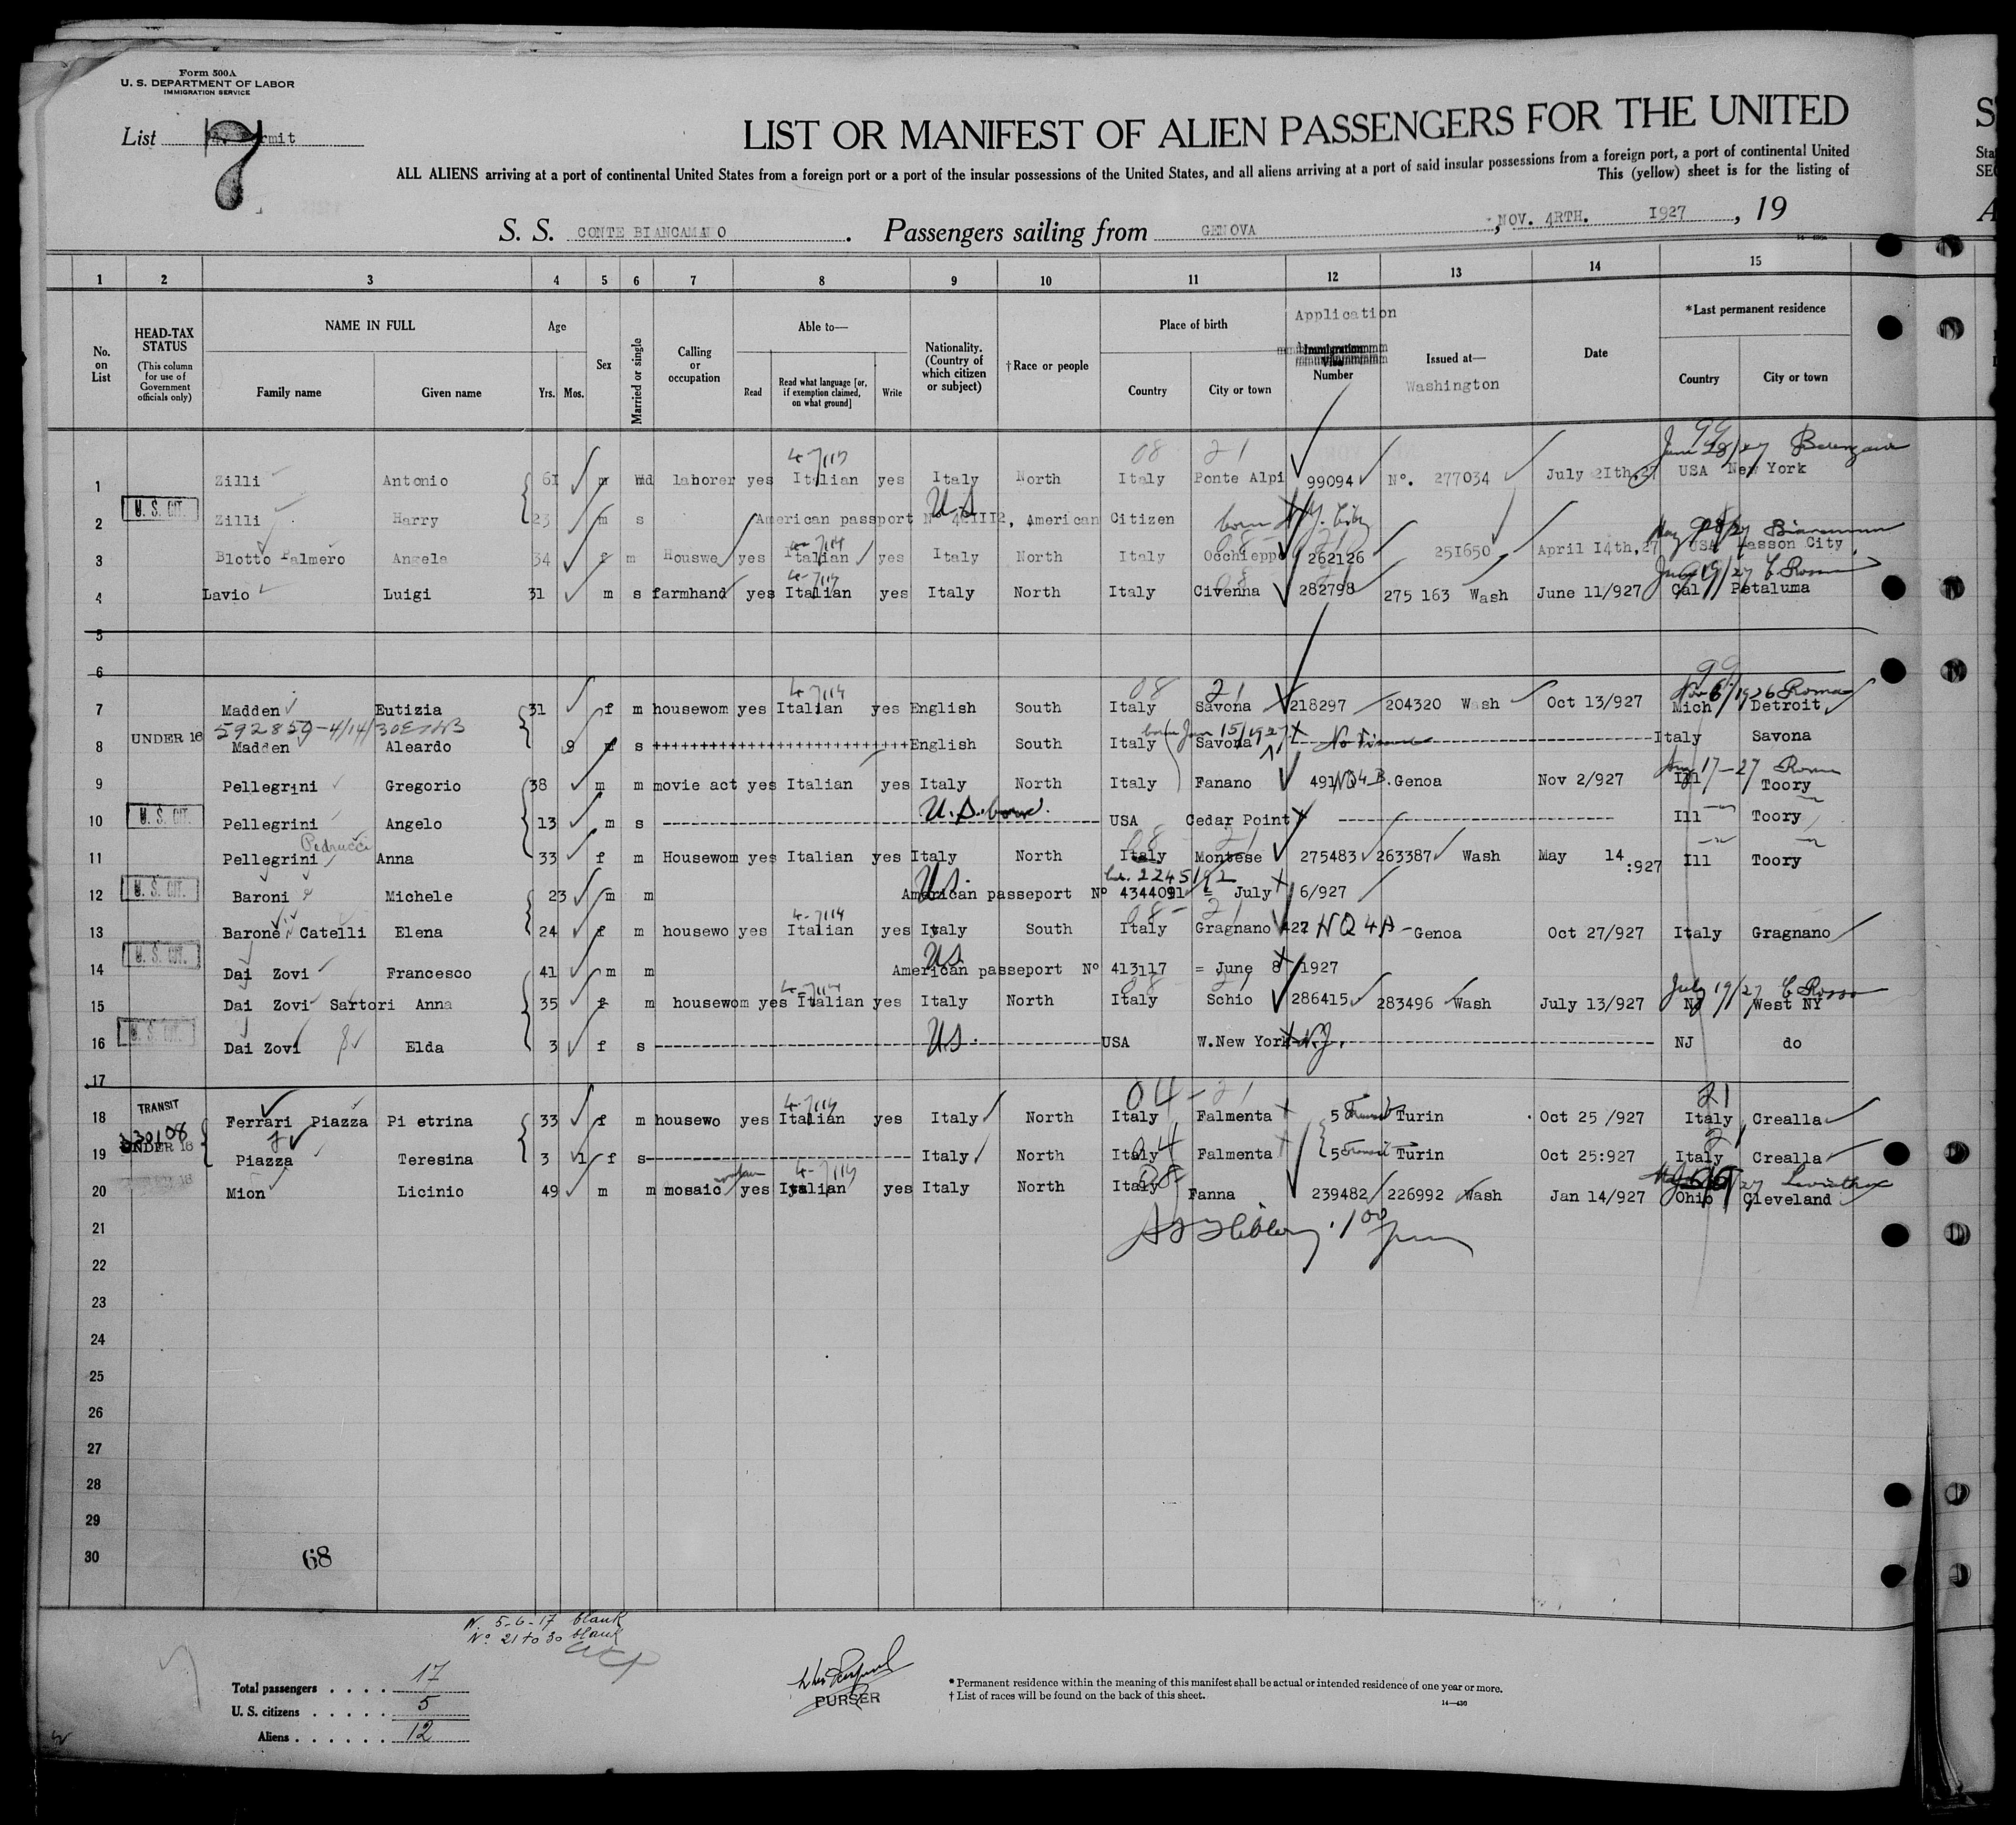 Form 500A
U. S. DEPARTMENT OF LABOR
IMMIGRATION SERVICE
List 7
LIST OR MANIFEST OF ALIEN PASSENGERS FOR THE UNITED
ALL ALIENS arriving at a port of continental United States from a foreign port or a port of the insular possessions of the United States, and all aliens arriving at a port of said insular possessions from a foreign port, a port of continental United
This (yellow) sheet is for the listing of
S. S. CONTE BIANCAMANO . Passengers sailing from GENOVA , NOV. 4RTH. 1927 , 19
1 2 3 4 5 6 7 8 9 10 11 12 13 14 15
No. on List
HEAD-TAX STATUS (This column for use of Government officials only)
NAME IN FULL Family name Given name
Age Yrs. Mos.
Sex
Married or single
Calling or occupation
Able to— Read Read what language [or, if exemption claimed, on what ground] Write
Nationality. (Country of which citizen or subject)
†Race or people
Place of birth Country City or town
Application Number
Issued at— Washington
Date
*Last permanent residence Country City or town
4-7/14 08 21 99 June 28/27
1 Zilli Antonio 61 m Wd laborer yes Italian yes Italy North Italy Ponte Alpi 99094 No. 277034 July 21th,27 USA New York
U. S. CIT. U.S
2 Zilli Harry 23 m s American passport No 41III2, American Citizen born N.Y. City
3 Blotto Palmero Angela 34 f m Houswe yes Italian yes Italy North Italy Occhieppo 262126 251650 April 14th,27 USA Wasson City
4 Lavio Luigi 31 m s farmhand yes Italian yes Italy North Italy Civenna 282798 275 163 Wash June 11/927 Cal Petaluma
5
6
4-7/14 08 21 99 Nov 6/1926 Roma
7 Madden Eutizia 31 f m housewom yes Italian yes English South Italy Savona 218297 204320 Wash Oct 13/927 Mich Detroit
592850-4/14/30 born Jan 15/1927
8 UNDER 16 Madden Aleardo 9 s English South Italy Savona Italy Savona
17-27 Roma
9 Pellegrini Gregorio 38 m m movie act yes Italian yes Italy North Italy Fanano 491 NQ4-B. Genoa Nov 2/927 Ill Toory
10 U. S. CIT. Pellegrini Angelo 13 m s U.S. born. USA Cedar Point Ill Toory
Pedrucci 08 21
11 Pellegrini Anna 33 f m Housewom yes Italian yes Italy North Italy Montese 275483 263387 Wash May 14:927 Ill Toory
2245192
12 U. S. CIT. Baroni Michele 23 m m U.S. American passeport No 4344091 = July 6/927
4-7/14 08-21
13 Barone Catelli Elena 24 f m housewo yes Italian yes Italy South Italy Gragnano 427 NQ 4A-Genoa Oct 27/927 Italy Gragnano
U. S. CIT. US
14 Dai Zovi Francesco 41 m m American passeport No 413117 = June 8/1927
July 19/27 C Rosso
15 Dai Zovi Sartori Anna 35 f m housewom yes Italian yes Italy North Italy Schio 286415 283496 Wash July 13/927 NJ West NY
16 U. S. CIT. Dai Zovi Elda 3 f s US. USA W.New York N.J. NJ do
17
TRANSIT 4-7/14 04-21 21
18 Ferrari Piazza Pi etrina 33 f m housewo yes Italian yes Italy North Italy Falmenta 5 Transit Turin Oct 25 /927 Italy Crealla
19 UNDER 16 Piazza Teresina 3 1 f s Italy North Italy Falmenta 5 Transit Turin Oct 25:927 Italy Crealla
4-7/14
20 Mion Licinio 49 m m mosaic yes Italian yes Italy North Italy Fanna 239482 226992 Wash Jan 14/927 Ohio Cleveland
21
22
23
24
25
26
27
28
29
30
68
N. 5-6-17 blank
No. 21 to 30 blank
Total passengers . . . . 17
U. S. citizens . . . . . 5
Aliens . . . . . . 12
PURSER
* Permanent residence within the meaning of this manifest shall be actual or intended residence of one year or more.
† List of races will be found on the back of this sheet.
14—430